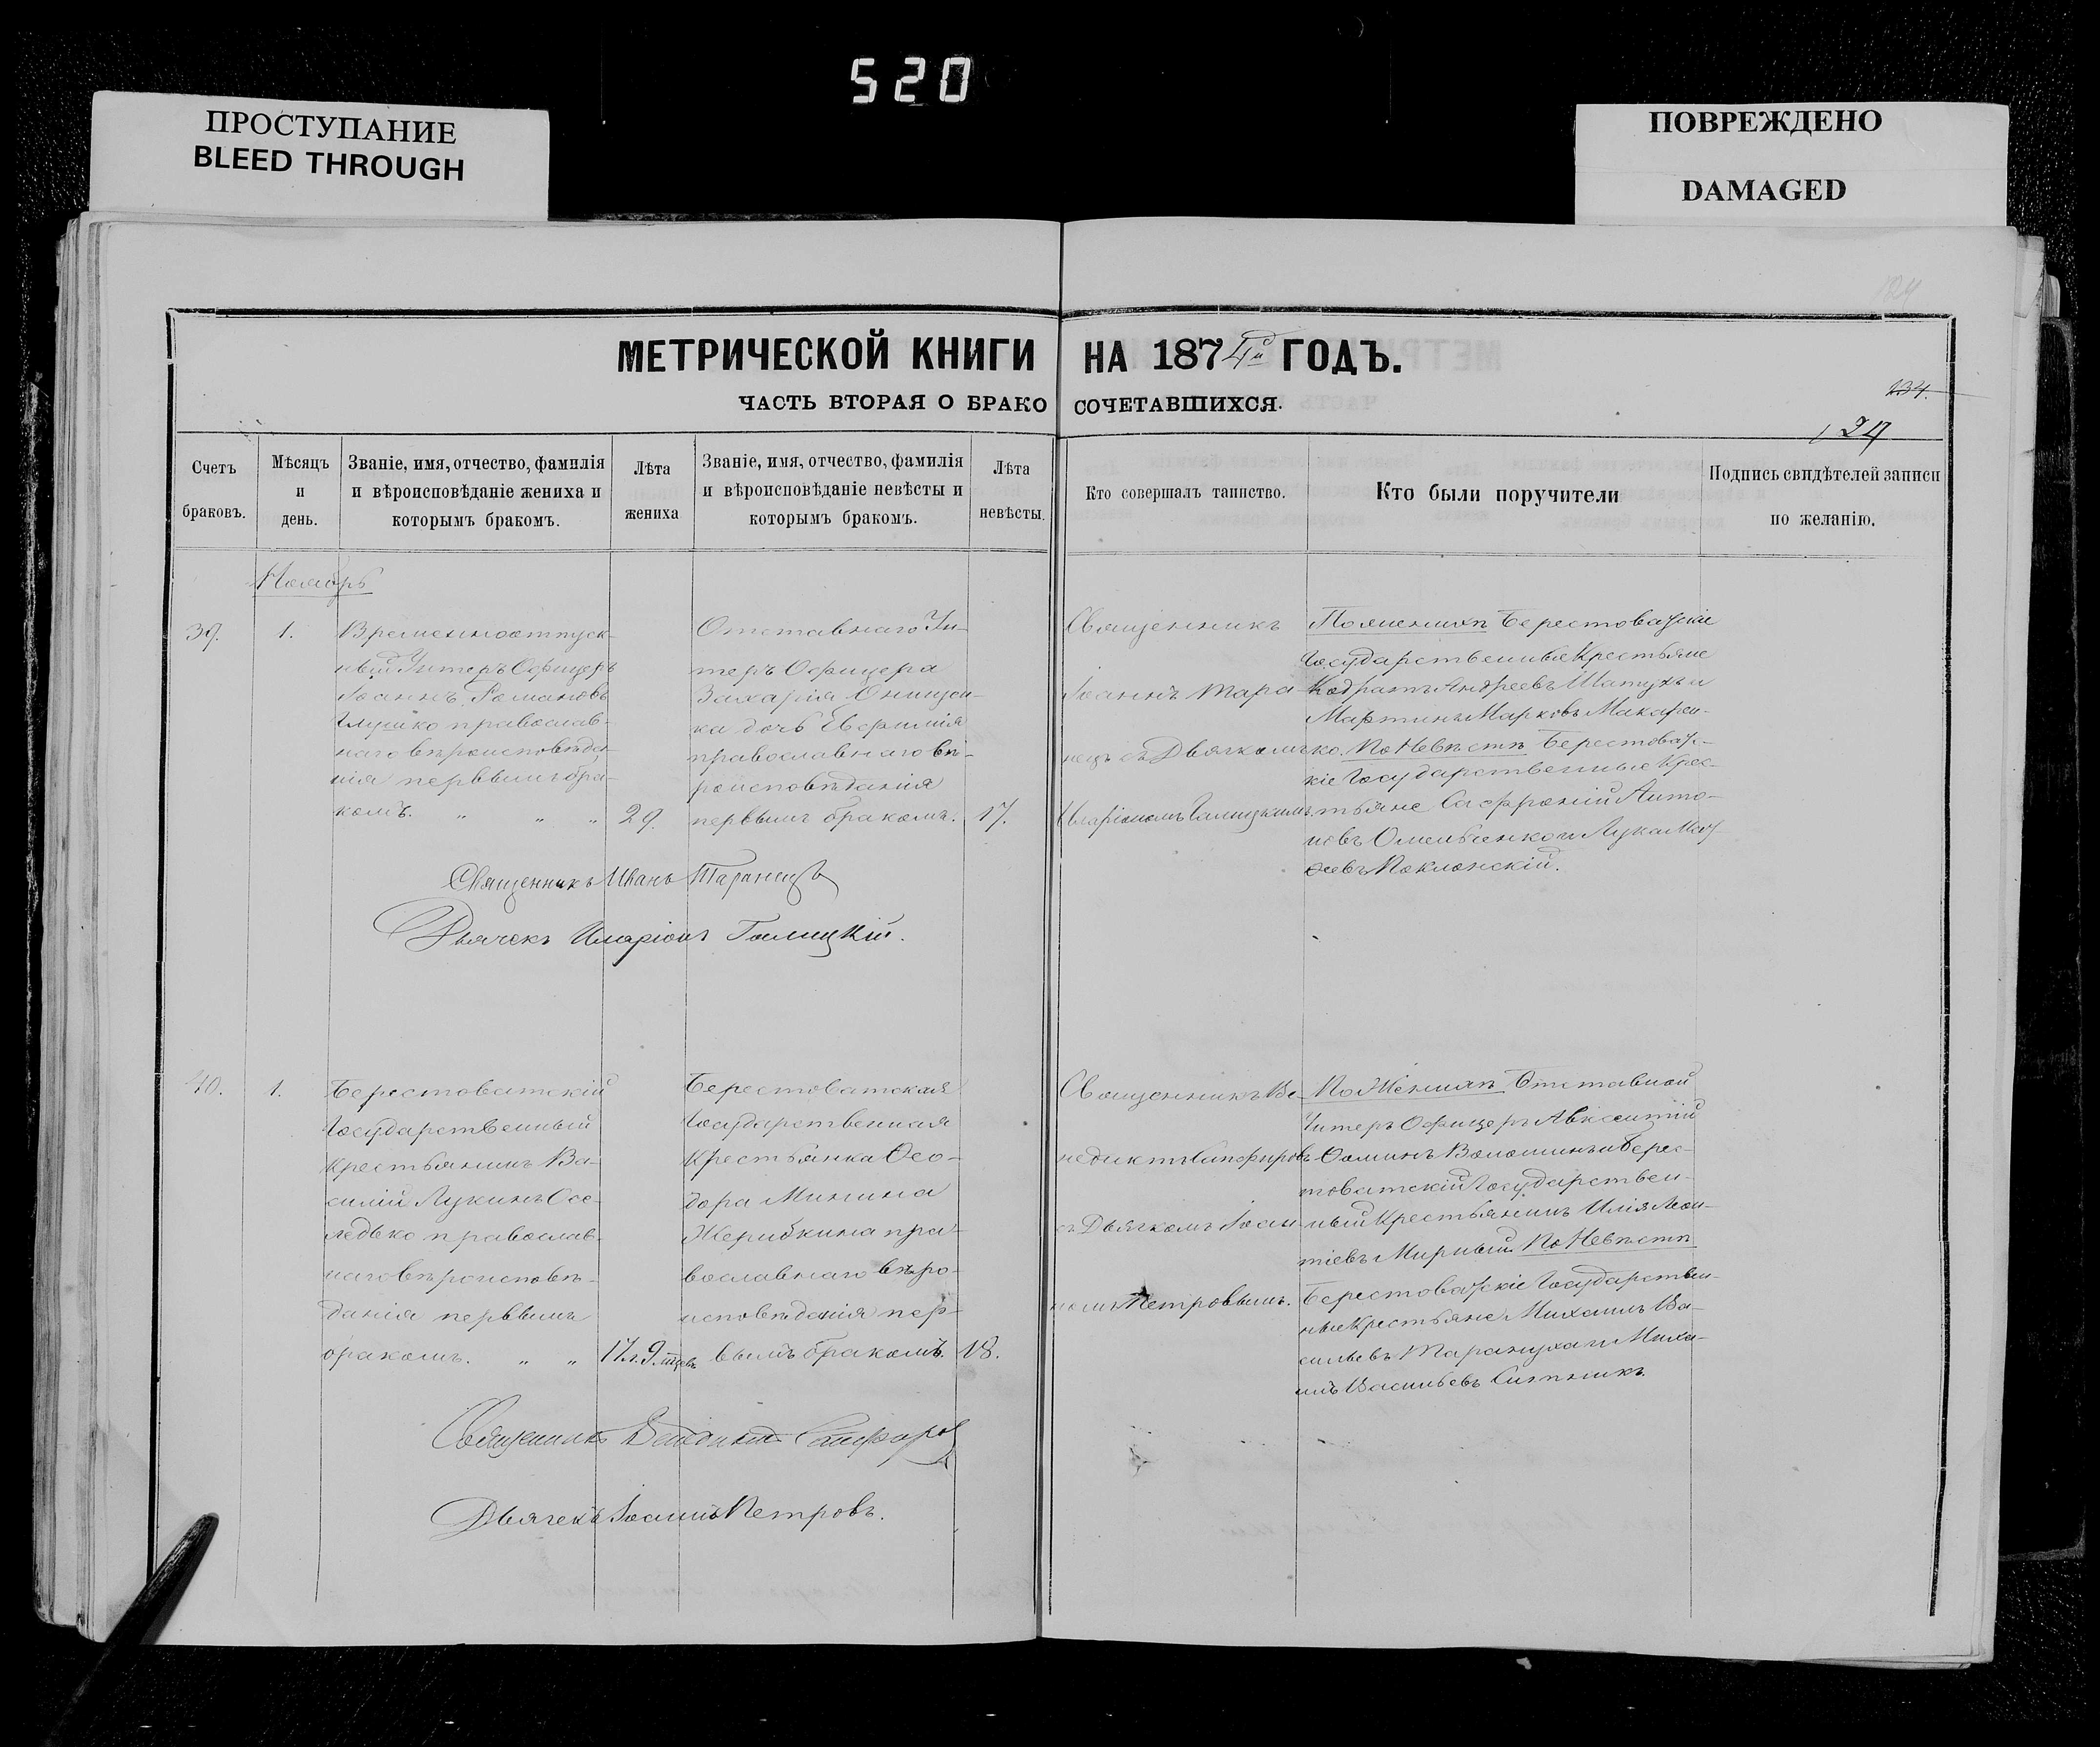 520
ПРОСТУПАНИЕ
BLEED THROUGH
ПОВРЕЖДЕНО
DAMAGED
МЕТРИЧЕСКОЙ КНИГИ НА 1874й ГОДЪ.
ЧАСТЬ ВТОРАЯ О БРАКОСОЧЕТАВШИХСЯ.
134.
124
Счетъ
браковъ.
Мѣсяцъ
и
день.
Званіе, имя, отчество, фамилія
и вѣроисповѣданіе жениха и
которымъ бракомъ.
Лѣта
жениха
Званіе, имя, отчество, фамилія
и вѣроисповѣданіе невѣсты и
которымъ бракомъ.
Лѣта
невѣсты.
Кто совершалъ таинство.
Кто были поручители
Подпись свидѣтелей записи
по желанію.
Ноябрь
39.
1.
Временноотпуск-
ный Унтеръ Офицеръ
Іоаннъ Романовъ
Глушко православ-
наго вѣроисповѣда-
нія первымъ бра-
комъ. " " "
29.
Отставнаго Ун-
теръ Офицера
Захарія Онищен-
ка дочь Евфимія
православнаго вѣ-
роисповѣданія
первымъ бракомъ.
17.
Священникъ
Іоаннъ Тара-
нецъ съ Дьячкомъ
Иларіономъ Галицкимъ.
По женихѣ Берестоватскіе
Государственные Крестьяне
Кодратъ Андреевъ Шатухъ и
Мартинъ Марковъ Макарен-
ко. По Невѣстѣ Берестоват-
кіе Государственные Крес-
тьяне Софроній Анто-
новъ Омельченко и Лука Мат-
ѳеевъ Поклонскій.
Священникъ Иванъ Таранецъ
Дьячекъ Иларіонъ Галицкій.
40.
1.
Берестоватскій
Государственный
Крестьянинъ Ва-
силій Лукинъ Осе-
ледько православ-
наго вѣроисповѣ-
данія первымъ
бракомъ. " "
17л. 9. мцевъ
Берестоватская
Государственная
Крестьянка Ѳео-
дора Минина
Жерибкина пра-
вославнаго вѣро-
исповѣданія пер-
вымъ бракомъ.
18.
Священникъ Ве-
недиктъ Сапфировъ
съ Дьячкомъ Іоан-
номъ Петровымъ.
По Женихѣ Отставной
Унтеръ Офицеръ Авксентій
Ѳоминъ Волошинъ и Берес-
товатскій Государствен-
ный Крестьянинъ Илія Леон-
тіевъ Мирный По Невѣстѣ
Берестоватскіе Государствен-
ные Крестьяне Михаилъ Ва-
сильевъ Тарануха и Миха-
илъ Васильевъ Ситникъ.
Священникъ Венедиктъ Сапфировъ
Дьячекъ Іоаннъ Петровъ.